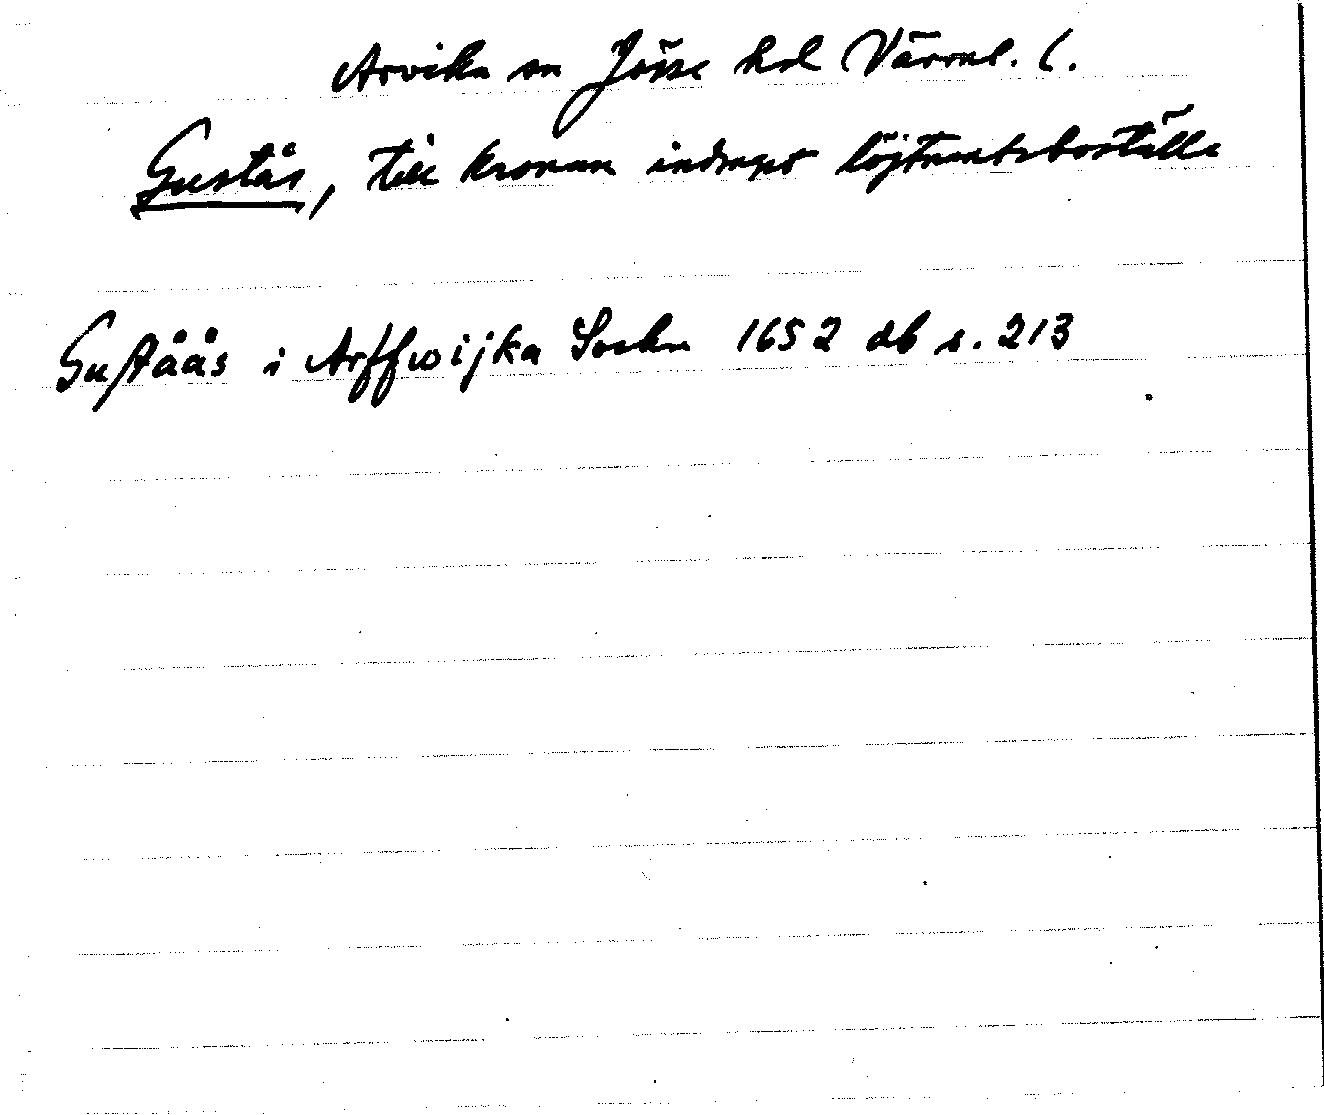 Arvika sn Jösse hd Värml. l.
Gustås, till kronan indraget löjtnantsboställe
Guståås i Arffwijka Sockn 1652 db s. 213